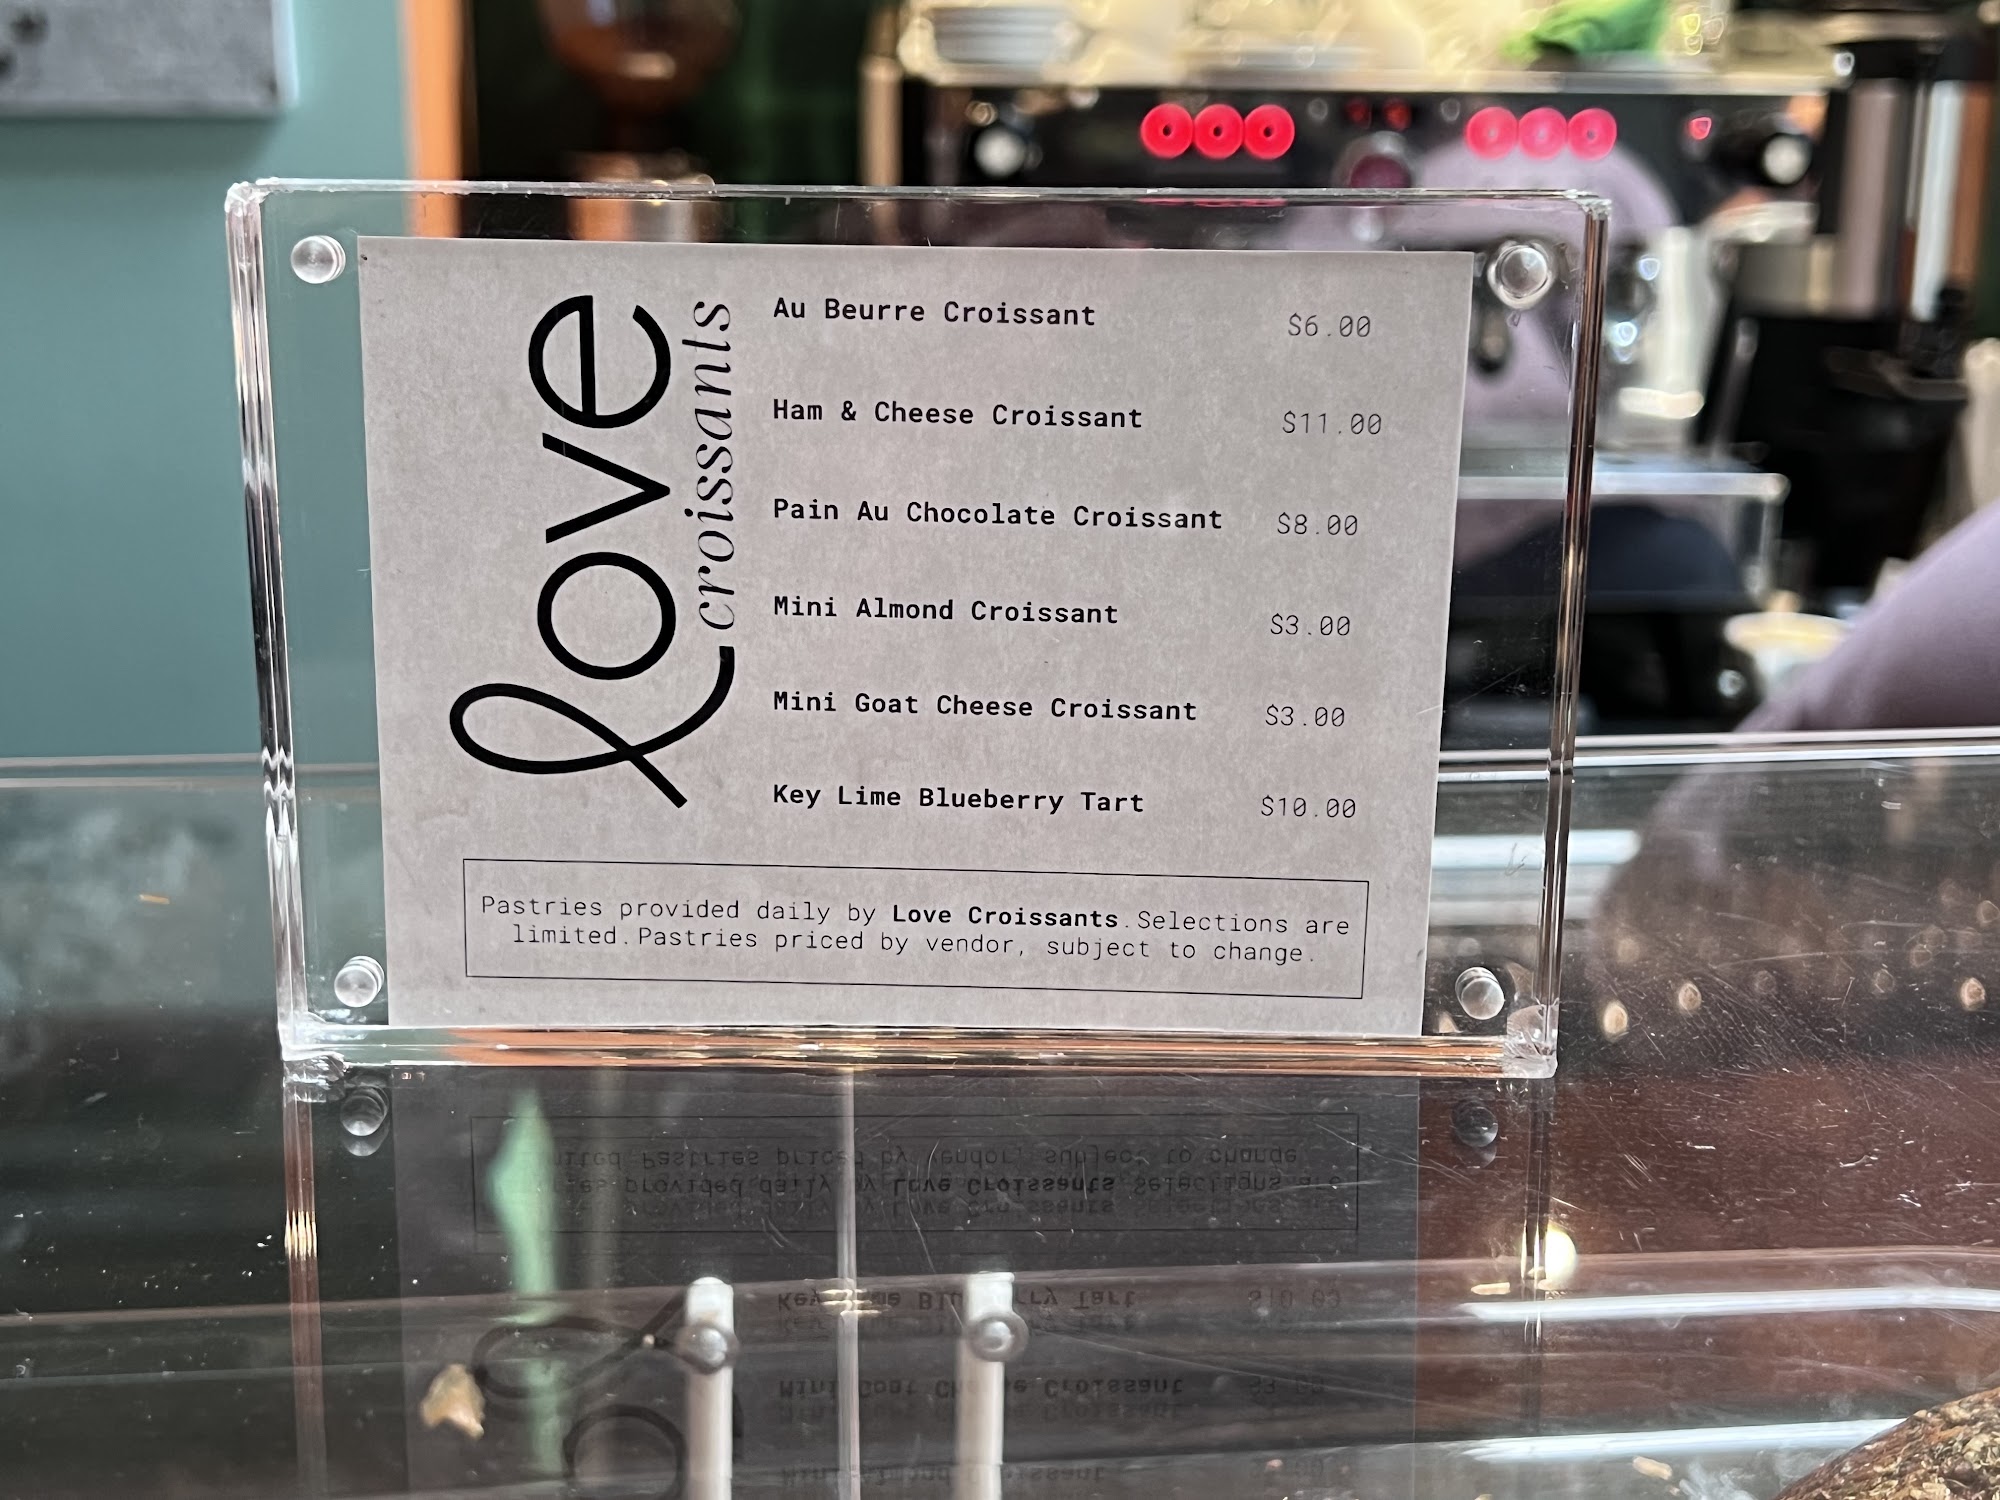 love
croissants
Au Beurre Croissant $6.00
Ham & Cheese Croissant $11.00
Pain Au Chocolate Croissant $8.00
Mini Almond Croissant $3.00
Mini Goat Cheese Croissant $3.00
Key Lime Blueberry Tart $10.00
Pastries provided daily by Love Croissants. Selections are
limited. Pastries priced by vendor, subject to change.